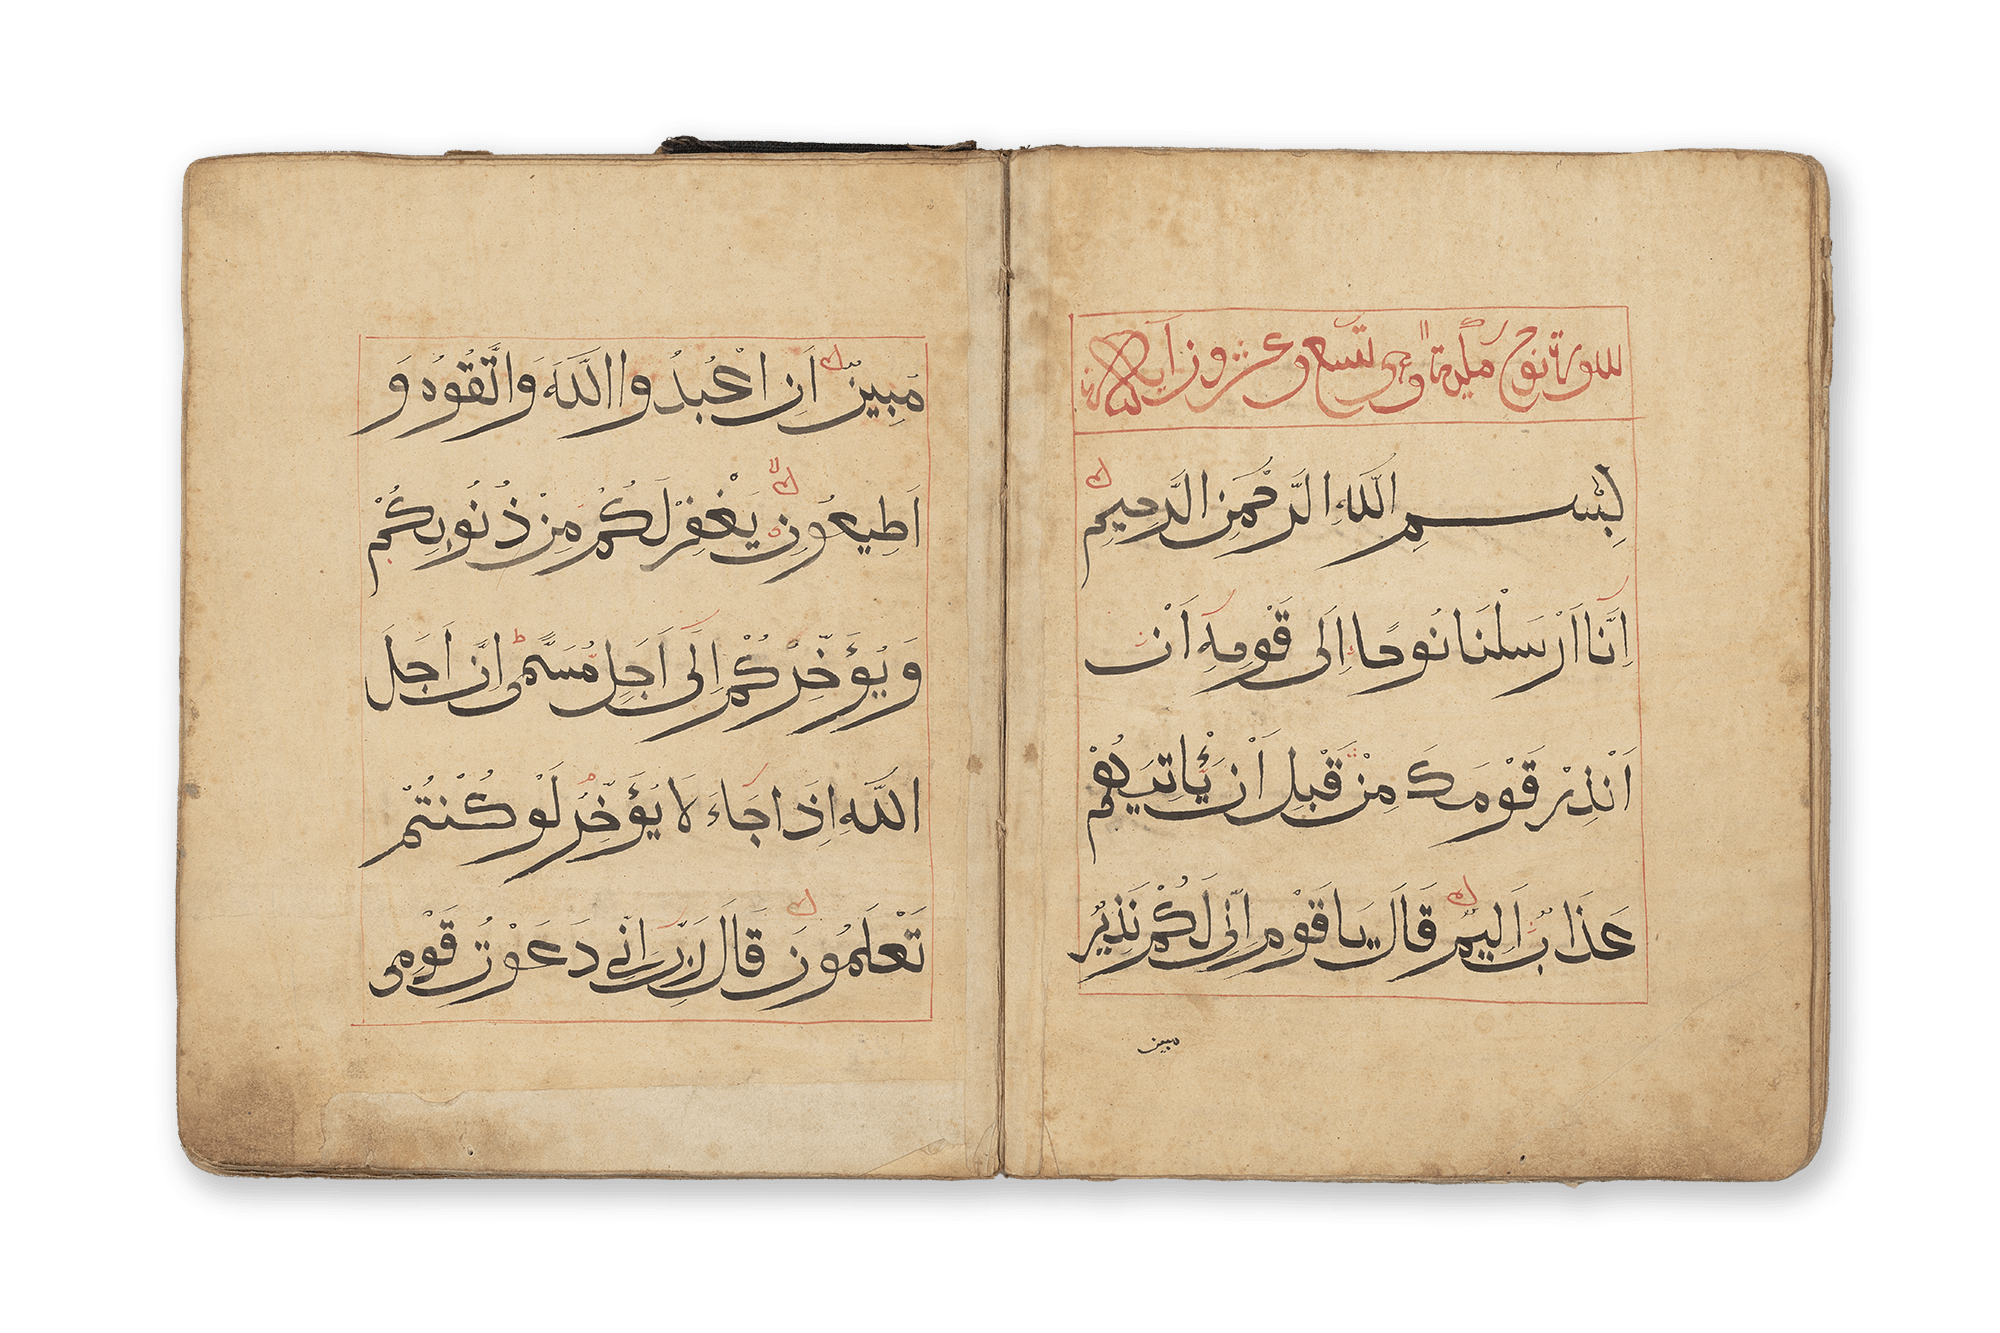 سورة نوح مكية وهي تسع وعشرون آية
بِسْمِ اللَّهِ الرَّحْمَنِ الرَّحِيمِ
اِنَّا اَرْسَلْنَا نُوحًا اِلَى قَوْمِهِ اَنْ
اَنْذِرْ قَوْمَكَ مِنْ قَبْلِ اَنْ يَأْتِيَهُمْ
عَذَابٌ اَلِيمٌ قَالَ يَا قَوْمِ اِنِّى لَكُمْ نَذِيرٌ
مبين
مُبِينٌ اَنِ اعْبُدُوا اللَّهَ وَاتَّقُوهُ وَ
اَطِيعُونِ يَغْفِرْ لَكُمْ مِنْ ذُنُوبِكُمْ
وَيُؤَخِّرْكُمْ اِلَى اَجَلٍ مُسَمًّى اِنَّ اَجَلَ
اللَّهِ اِذَا جَاءَ لَا يُؤَخَّرُ لَوْ كُنْتُمْ
تَعْلَمُونَ قَالَ رَبِّ اِنِّى دَعَوْتُ قَوْمِى